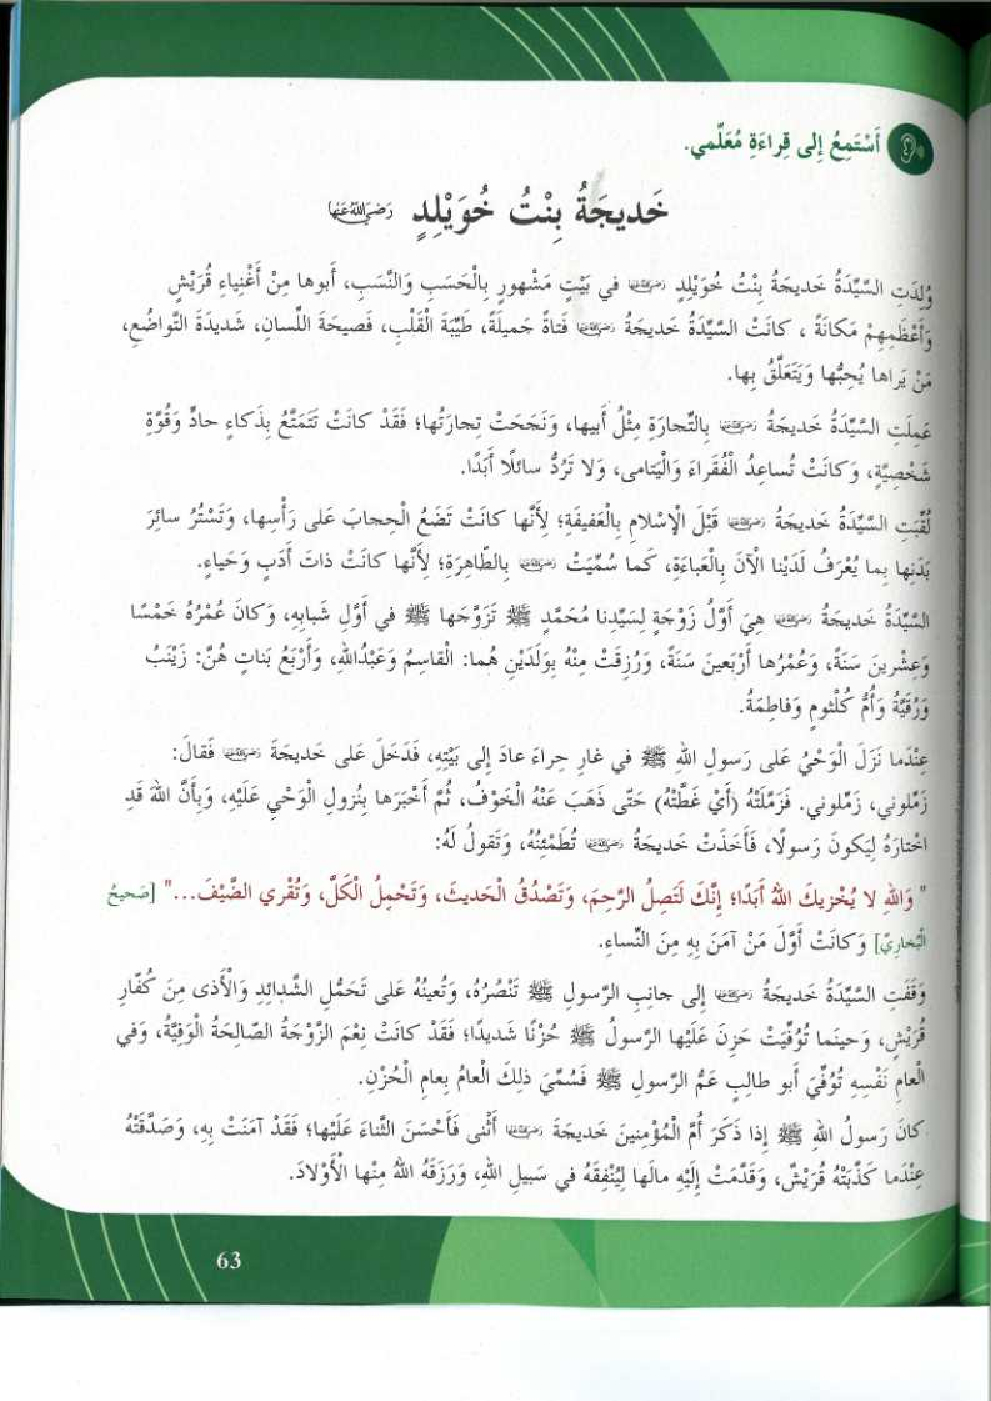 أَسْتَمِعُ إِلى قِراءَةِ مُعَلِّمي.
خَديجَةُ بِنْتُ خُوَيْلِدٍ رَضِيَ اللهُ عَنْهَا
وُلِدَتِ السَّيِّدَةُ خَديجَةُ بِنْتُ خُوَيْلِدٍ رَضِيَ اللهُ عَنْهَا في بَيْتٍ مَشْهورٍ بِالْحَسَبِ وَالنَّسَبِ، أَبوها مِنْ أَغْنِياءِ قُرَيْشٍ
وَأَعْظَمِهِمْ مَكانَةً ، كانَتْ السَّيِّدَةُ خَديجَةُ رَضِيَ اللهُ عَنْهَا فَتاةً جَميلَةً، طَيِّبَةَ الْقَلْبِ، فَصيحَةَ اللِّسانِ، شَديدَةَ التَّواضُعِ،
مَنْ يَراها يُحِبُّها وَيَتَعَلَّقُ بِها.
عَمِلَتِ السَّيِّدَةُ خَديجَةُ رَضِيَ اللهُ عَنْهَا بِالتِّجارَةِ مِثْلُ أَبيها، وَنَجَحَتْ تِجارَتُها؛ فَقَدْ كانَتْ تَتَمَتَّعُ بِذَكاءٍ حادٍّ وَقُوَّةِ
شَخْصِيَّةٍ، وَكانَتْ تُساعِدُ الْفُقَراءَ وَالْيَتامى، وَلا تَرُدُّ سائِلًا أَبَدًا.
لُقِّبَتِ السَّيِّدَةُ خَديجَةُ رَضِيَ اللهُ عَنْهَا قَبْلَ الْإِسْلامِ بِالْعَفيفَةِ؛ لِأَنَّها كانَتْ تَضَعُ الْحِجابَ عَلى رَأْسِها، وَتَسْتُرُ سائِرَ
بَدَنِها بِما يُعْرَفُ لَدَيْنا الْآنَ بِالْعَباءَةِ، كَما سُمِّيَتْ رَضِيَ اللهُ عَنْهَا بِالطّاهِرَةِ؛ لِأَنَّها كانَتْ ذاتَ أَدَبٍ وَحَياءٍ.
السَّيِّدَةُ خَديجَةُ رَضِيَ اللهُ عَنْهَا هِيَ أَوَّلُ زَوْجَةٍ لِسَيِّدِنا مُحَمَّدٍ ﷺ تَزَوَّجَها ﷺ في أَوَّلِ شَبابِهِ، وَكانَ عُمْرُهُ خَمْسًا
وَعِشْرينَ سَنَةً، وَعُمْرُها أَرْبَعينَ سَنَةً، وَرُزِقَتْ مِنْهُ بِوَلَدَيْنِ هُما: الْقاسِمُ وَعَبْدُاللهِ، وَأَرْبَعُ بَناتٍ هُنَّ: زَيْنَبُ
وَرُقَيَّةُ وَأُمُّ كُلْثومٍ وَفاطِمَةُ.
عِنْدَما نَزَلَ الْوَحْيُ عَلى رَسولِ اللهِ ﷺ في غارِ حِراءَ عادَ إِلى بَيْتِهِ، فَدَخَلَ عَلى خَديجَةَ رَضِيَ اللهُ عَنْهَا فَقالَ:
زَمِّلوني، زَمِّلوني. فَزَمَّلَتْهُ (أَيْ غَطَّتْهُ) حَتّى ذَهَبَ عَنْهُ الْخَوْفُ، ثُمَّ أَخْبَرَها بِنُزولِ الْوَحْيِ عَلَيْهِ، وَبِأَنَّ اللهَ قَدِ
اخْتارَهُ لِيَكونَ رَسولًا، فَأَخَذَتْ خَديجَةُ رَضِيَ اللهُ عَنْهَا تُطَمْئِنُهُ، وَتَقولُ لَهُ:
" وَاللهِ لا يُخْزيكَ اللهُ أَبَدًا؛ إِنَّكَ لَتَصِلُ الرَّحِمَ، وَتَصْدُقُ الْحَديثَ، وَتَحْمِلُ الْكَلَّ، وَتُقْرِي الضَّيْفَ..." [صَحيحُ
الْبُخارِيّ] وَكانَتْ أَوَّلَ مَنْ آمَنَ بِهِ مِنَ النِّساءِ.
وَقَفَتِ السَّيِّدَةُ خَديجَةُ رَضِيَ اللهُ عَنْهَا إِلى جانِبِ الرَّسولِ ﷺ تَنْصُرُهُ، وَتُعينُهُ عَلى تَحَمُّلِ الشَّدائِدِ وَالْأَذى مِنَ كُفّارِ
قُرَيْشٍ، وَحينَما تُوُفِّيَتْ حَزِنَ عَلَيْها الرَّسولُ ﷺ حُزْنًا شَديدًا؛ فَقَدْ كانَتْ نِعْمَ الزَّوْجَةُ الصّالِحَةُ الْوَفِيَّةُ، وَفي
الْعامِ نَفْسِهِ تُوُفِّيَ أَبو طالِبٍ عَمُّ الرَّسولِ ﷺ فَسُمِّيَ ذلِكَ الْعامُ بِعامِ الْحُزْنِ.
كانَ رَسولُ اللهِ ﷺ إِذا ذَكَرَ أُمَّ الْمُؤْمِنينَ خَديجَةَ رَضِيَ اللهُ عَنْهَا أَثْنى فَأَحْسَنَ الثَّناءَ عَلَيْها؛ فَقَدْ آمَنَتْ بِهِ، وَصَدَّقَتْهُ
عِنْدَما كَذَّبَتْهُ قُرَيْشٌ، وَقَدَّمَتْ إِلَيْهِ مالَها لِيُنْفِقَهُ في سَبيلِ اللهِ، وَرَزَقَهُ اللهُ مِنْها الْأَوْلادَ.
63